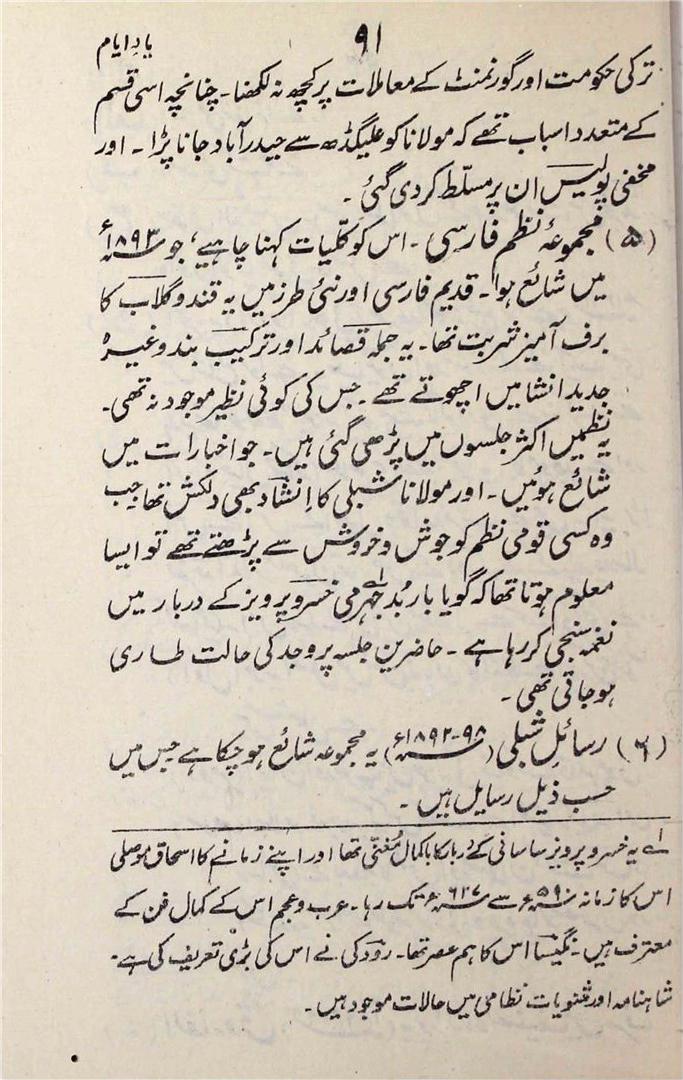 ۹۱
یادِ ایام
ترکی حکومت اور گورنمنٹ کے معاملات پر کچھ نہ لکھنا۔ چنانچہ اسی قسم
کے متعدد اسباب تھے کہ مولانا کو علیگڈھ سے حیدرآباد جانا پڑا۔ اور
مخفی پولیس ان پر مسلّط کر دی گئی۔
(۵) مجموعۂ نظم فارسی۔ اس کو کلّیات کہنا چاہیے، جو ۱۸۹۳ء
میں شائع ہوا۔ قدیم فارسی اور نئی طرز میں یہ قند و گلاب کا
برف آمیز شربت تھا۔ یہ جملہ قصائد اور ترکیب بند وغیرہ
جدید انشا میں اچھوتے تھے۔ جس کی کوئی نظیر موجود نہ تھی۔
یہ نظمیں اکثر جلسوں میں پڑھی گئی ہیں۔ جو اخبارات میں
شائع ہوئیں۔ اور مولانا شبلی کا اِنشاد بھی دلکش تھا جب
وہ کسی قومی نظم کو جوش و خروش سے پڑھتے تھے تو ایسا
معلوم ہوتا تھا کہ گویا باربُد جہرمی لہ خسرو پرویز کے دربار میں
نغمہ سنجی کر رہا ہے۔ حاضرینِ جلسہ پر وجد کی حالت طاری
ہو جاتی تھی۔
(۶) رسائلِ شبلی (۹۸-۱۸۹۲ء) یہ مجموعہ شائع ہو چکا ہے جس میں
حسب ذیل رسایل ہیں۔
لہ یہ خسرو پرویز ساسانی کے دربار کا باکمال مُغنّی تھا اور اپنے زمانے کا اسحاق موصلی
اس کا زمانہ ۵۹۰ء سے ۶۲۷ء تک رہا۔ عرب و عجم اس کے کمال فن کے
معترف ہیں۔ نگیسا اس کا ہم عصر تھا۔ رودکی نے اس کی بڑی تعریف کی ہے۔
شاہنامہ اور مثنویات نظامی میں حالات موجود ہیں۔